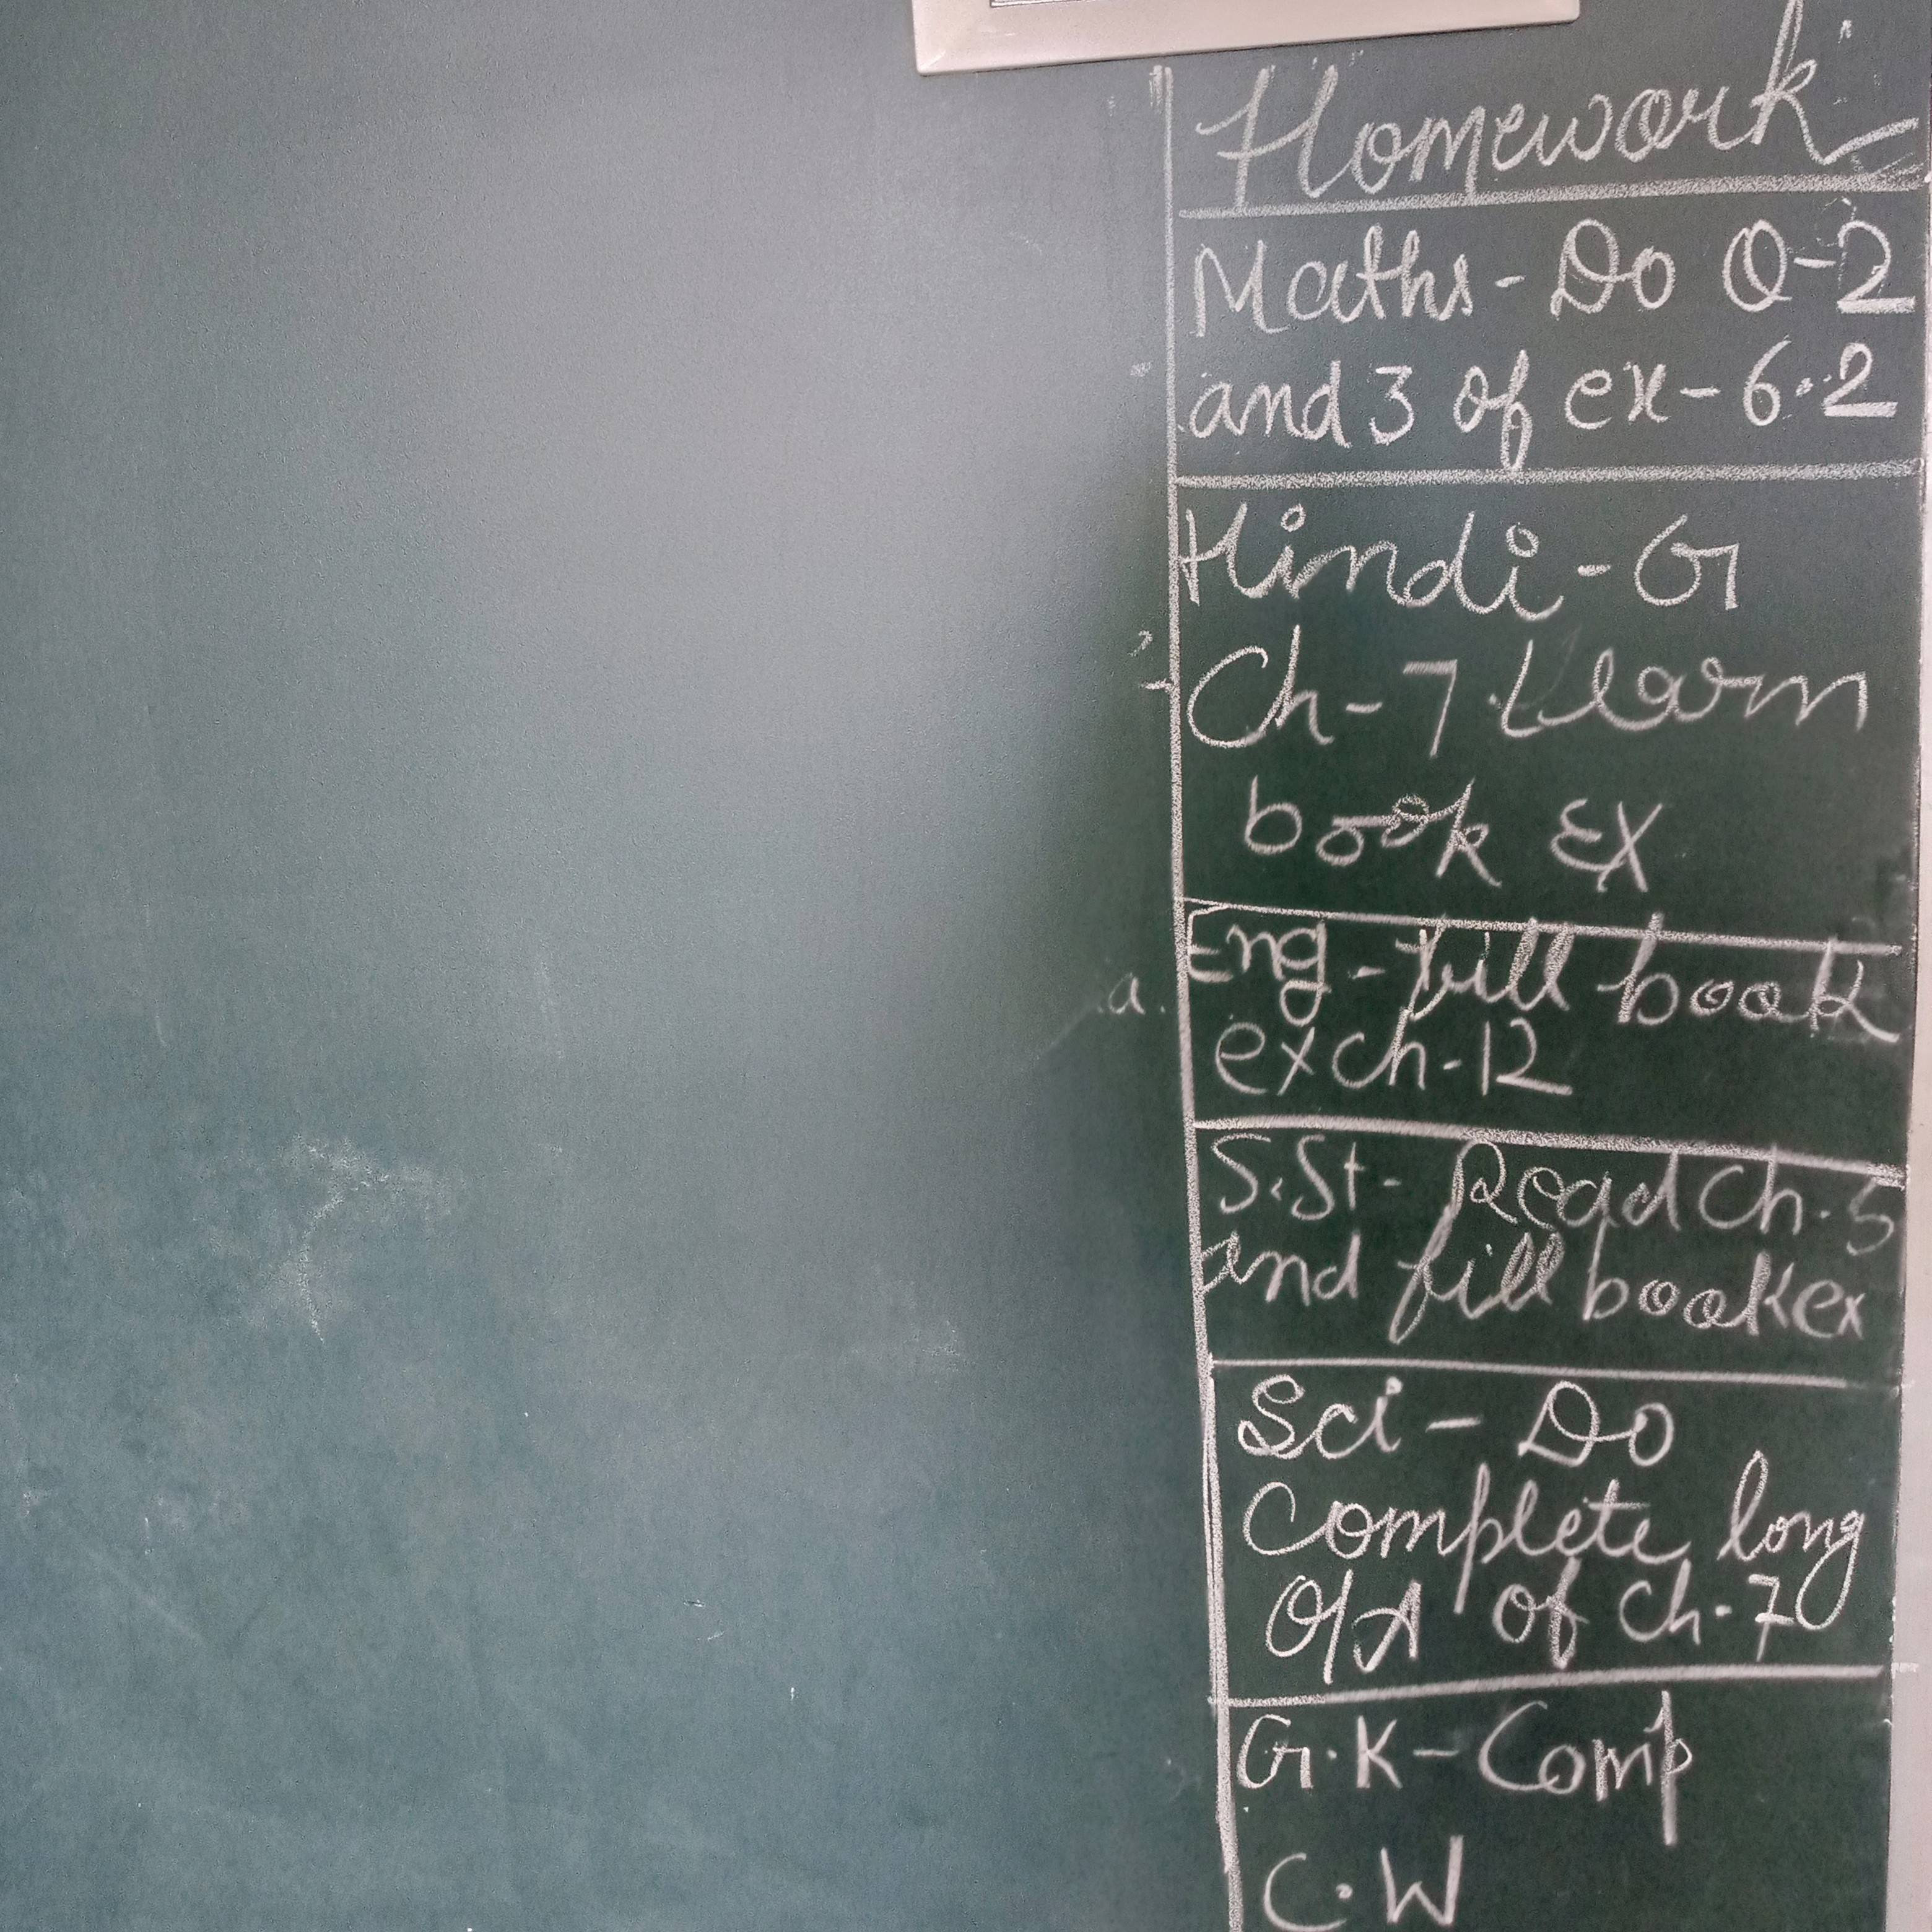 Homework
Maths - Do Q-2
and 3 of ex - 6.2
Hindi - Gr
Ch - 7 Learn
book Ex
Eng - fill book
ex ch - 12
a.
S.St - Read Ch. 5
and fill book ex
Sci - Do
Complete long
Q/A of Ch - 7
G.K - Comp
C.W